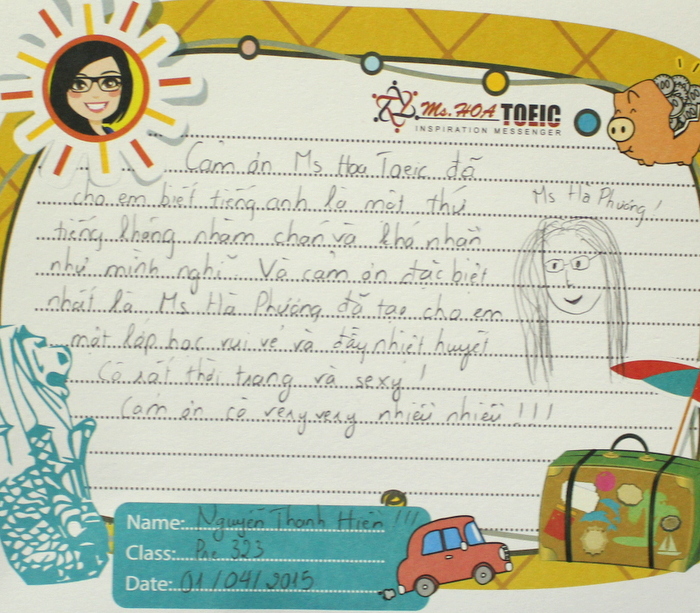 Ms. HOA TOEIC
INSPIRATION MESSENGER
Cảm ơn Ms Hoa Toeic đã
cho em biết tiếng anh là một thứ
tiếng không nhàm chán và khó nhằn
như mình nghĩ. Và cảm ơn đặc biệt
nhất là Ms Hà Phương đã tạo cho em
một lớp học vui vẻ và đầy nhiệt huyết
Cô rất thời trang và sexy!
Cảm ơn cô very very nhiều nhiều!!!
Ms Hà Phương!
Name: Nguyễn Thanh Hiền!!!
Class: Pre 323
Date: 01/04/2015